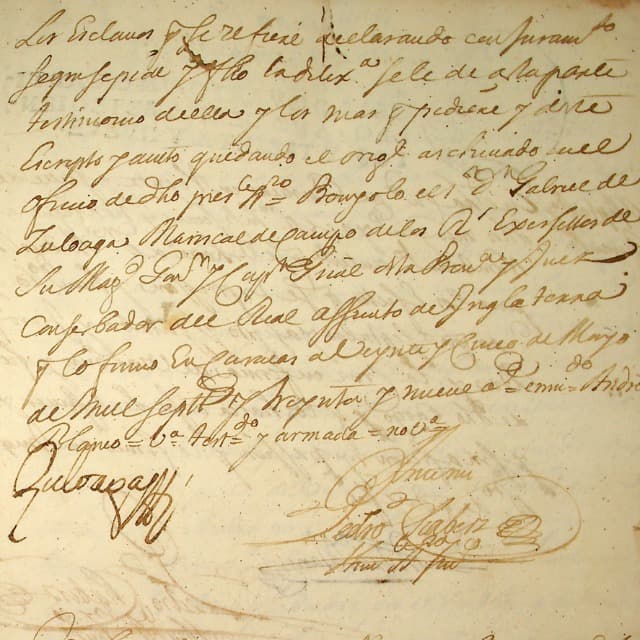 Los Esclavos q̃ se refiere declarando con Juram.to
Segun se pide y fho la dilix.a se le de a la parte
testimonio de ella y los mas q̃ pidiere y de este
Escripto y auto quedando el orig.l archivado en el
oficio de dho pres.te
Zuloaga Mariscal de Campo de los R.s Exersittos de
Su Mag.d Gov.r y Capp.n Gral de la Prov.a y Juez
Conserbador del Real assiento de Inglaterra
q̃ lo firmo En Caracas a Veynte y Cinco de Mayo
de Mill Septt.s y treynta y nueve a.s
y armada =
Zuloaga
Antemi
Pedro